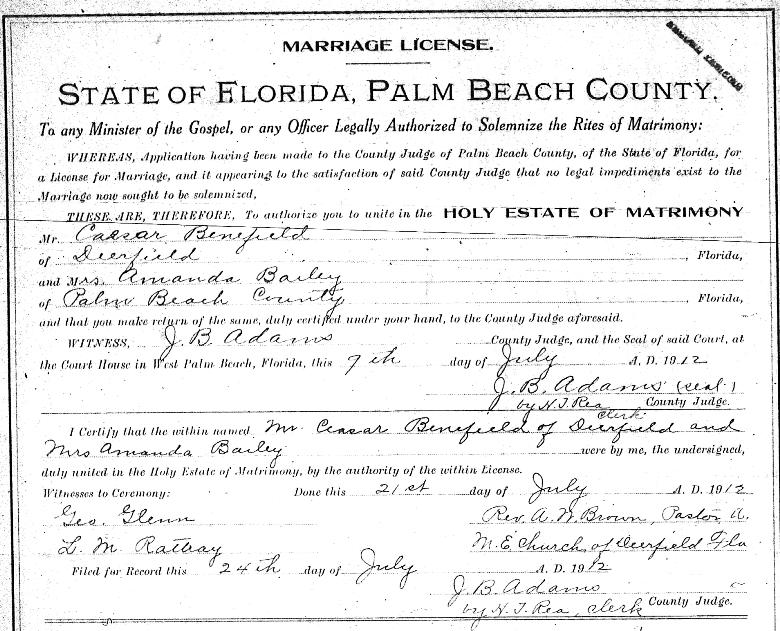 MARRIAGE LICENSE.
STATE OF FLORIDA, PALM BEACH COUNTY.
To any Minister of the Gospel, or any Officer Legally Authorized to Solemnize the Rites of Matrimony:
WHEREAS, Application having been made to the County Judge of Palm Beach County, of the State of Florida, for
a License for Marriage, and it appearing to the satisfaction of said County Judge that no legal impediments exist to the
Marriage now sought to be solemnized,
THESE ARE, THEREFORE, To authorize you to unite in the HOLY ESTATE OF MATRIMONY
Mr. Caesar Benefield
of Deerfield, Florida,
and Mrs. Amanda Bailey
of Palm Beach County, Florida,
and that you make return of the same, duly certified under your hand, to the County Judge aforesaid.
WITNESS, J. B. Adams County Judge, and the Seal of said Court, at
the Court House in West Palm Beach, Florida, this 7th day of July A. D. 1912
J. B. Adams (seal)
by H. J. Rea County Judge.
clerk
I Certify that the within named Mr. Ceasar Benefield of Deerfield and
Mrs Amanda Bailey were by me, the undersigned,
duly united in the Holy Estate of Matrimony, by the authority of the within License.
Witnesses to Ceremony: Done this 21st day of July A. D. 1912
Geo. Glenn Rev. A. W. Brown, Pastor A.
L. M. Rattray M. E. Church of Deerfield Fla
Filed for Record this 24th day of July A. D. 1912
J. B. Adams
by H. J. Rea, clerk County Judge.